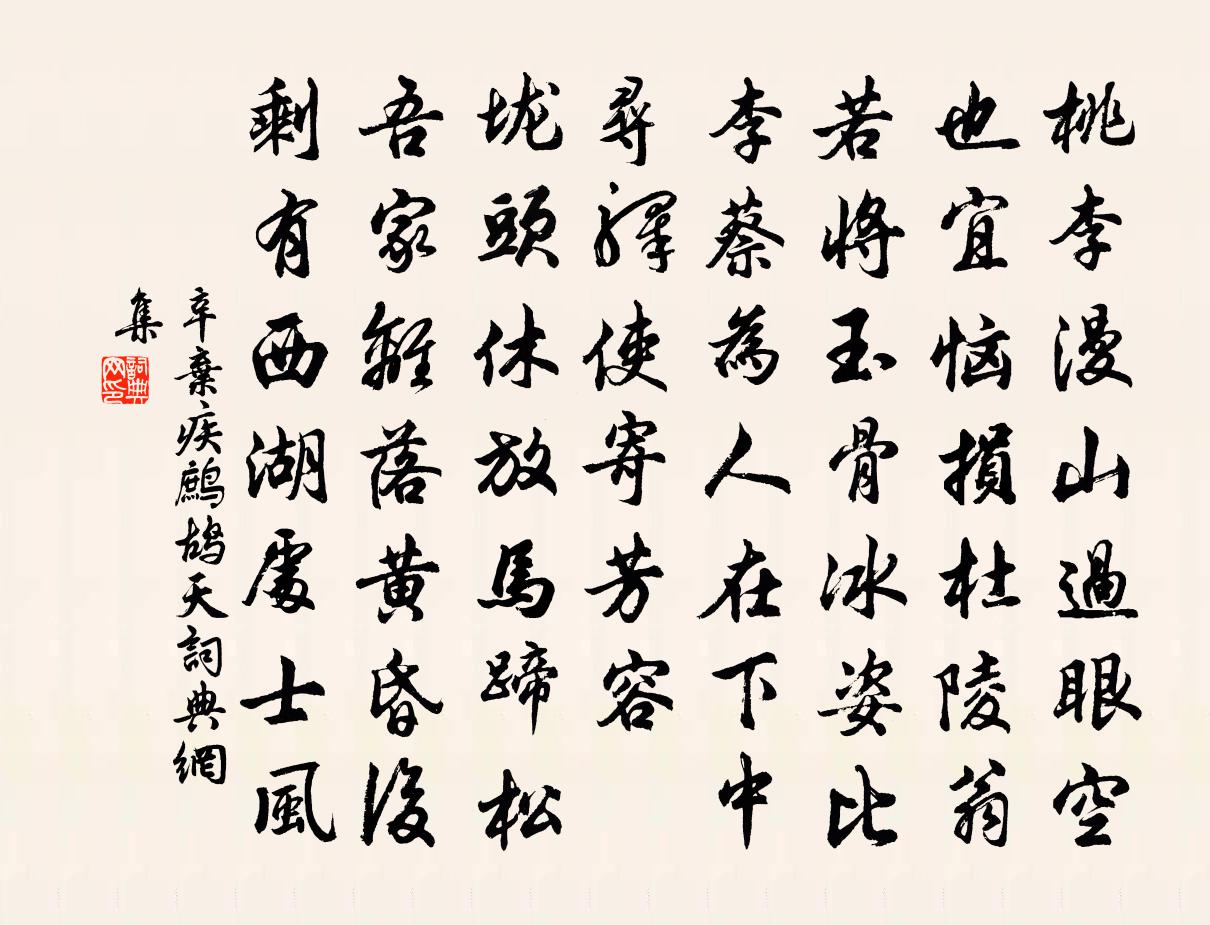 桃李漫山過眼空
也宜恼損杜陵翁
若將玉骨冰姿比
李蔡為人在下中
尋驛使寄芳容
垅頭休放馬蹄松
吾家籬落黄昏後
剩有西湖處士風
辛棄疾鷓鴣天詞典網
集
詞典网印